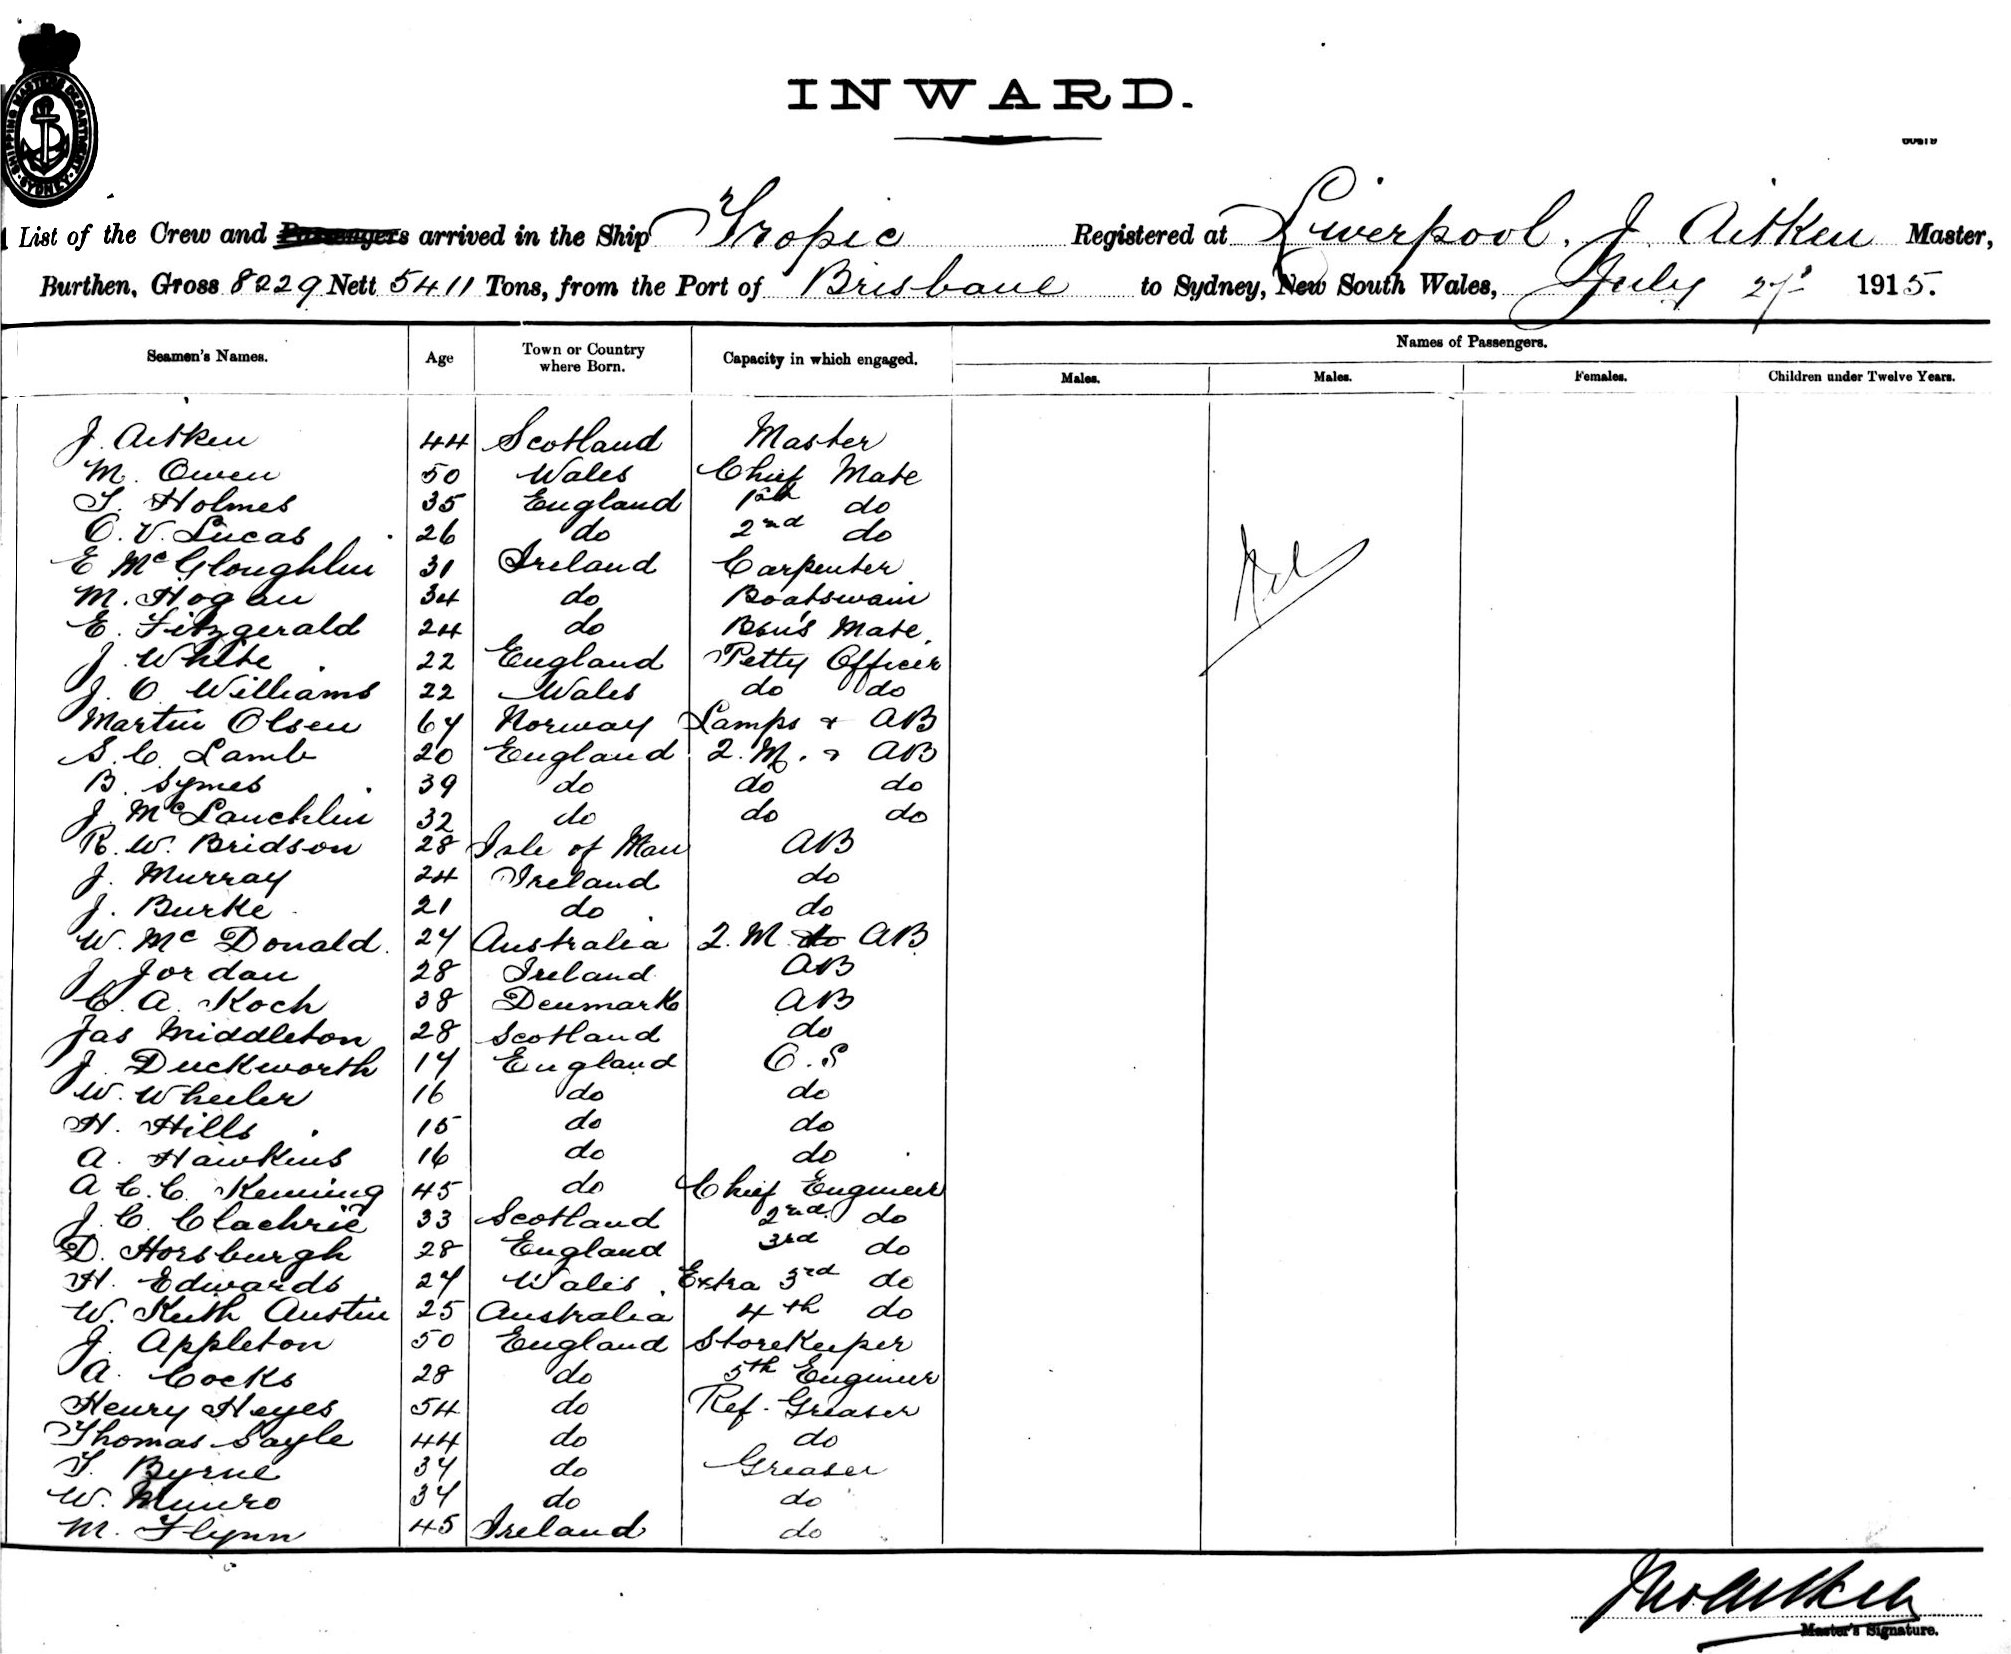 INWARD.
SHIPPING MASTERS DEPARTMENT SYDNEY
List of the Crew and Passengers arrived in the Ship Tropic Registered at Liverpool. J. Aitken Master,
Burthen, Gross 8229 Nett 5411 Tons, from the Port of Brisbane to Sydney, New South Wales, July 27 1915.
Seamen's Names. Age Town or Country where Born. Capacity in which engaged. Names of Passengers.
Males. Males. Females. Children under Twelve Years.
J. Aitken 44 Scotland Master
M. Owen 50 Wales Chief Mate
T. Holmes 35 England 1st do
O. V. Lucas 26 do 2nd do
E McGloughlin 31 Ireland Carpenter
M. Hogan 34 do Boatswain
E. Fitzgerald 24 do Bsn's Mate.
J. White 22 England Petty Officer
J. O. Williams 22 Wales do do
Martin Olsen 67 Norway Lamps & AB
S. C. Lamb 20 England 2. M. & AB
B. Symes 39 do do do
J. McLauchlin 32 do do do
R. W. Bridson 28 Isle of Man AB
J. Murray 24 Ireland do
J. Burke 21 do do
W. Mc Donald 27 Australia 2. M do AB
J Jordan 28 Ireland AB
C. A. Koch 38 Denmark AB
Jas Middleton 28 Scotland do
J. Duckworth 17 England O.S
W. Wheeler 16 do do
H. Hills 15 do do
A. Hawkins 16 do do
A C. C. Kenning 45 do Chief Engineer
J. C. Clachrie 33 Scotland 2nd do
D. Horsburgh 28 England 3rd do
H. Edwards 27 Wales Extra 3rd do
W. Keith Austin 25 Australia 4th do
J. Appleton 50 England Storekeeper
A. Cocks 28 do 5th Engineer
Henry Heyes 54 do Ref. Greaser
Thomas Sayle 44 do do
T. Byrne 37 do Greaser
W. Munro 37 do do
M. Flynn 45 Ireland do
Nil
Jno Aitken
Master's Signature.